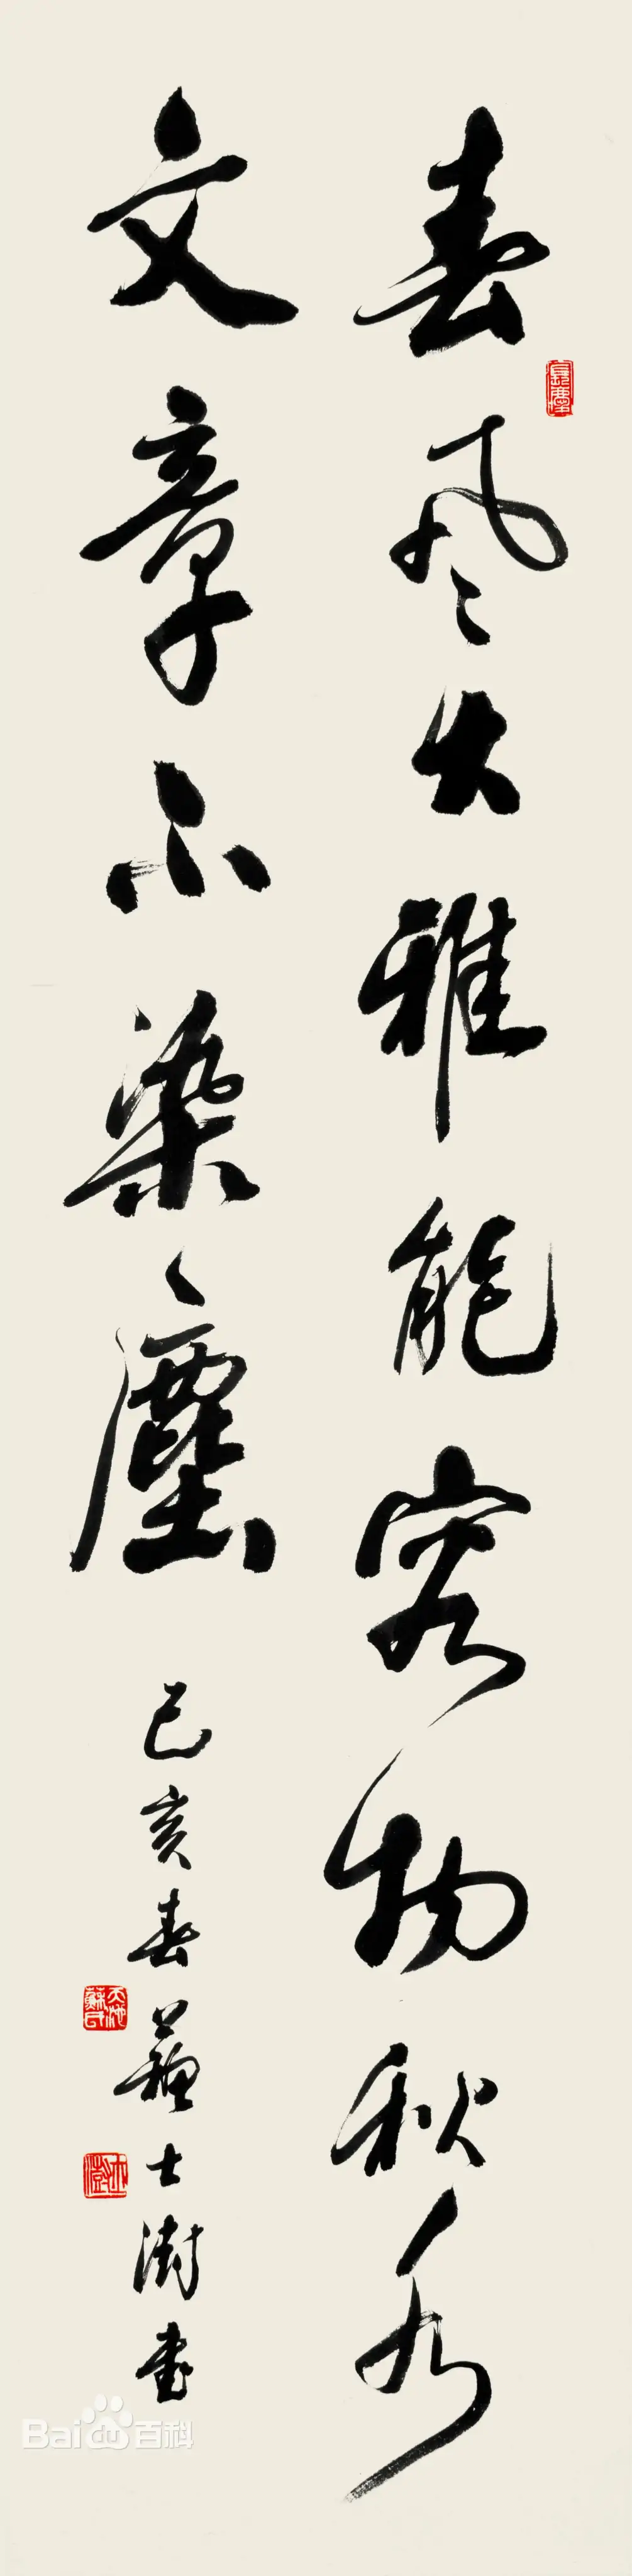 春风大雅能容物秋水
文章不染塵
己亥春蘇士澍書
Baidu百科